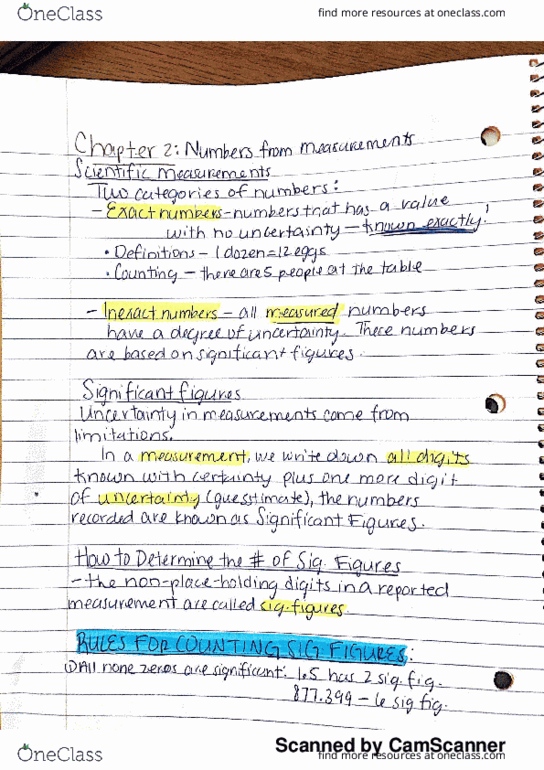 OneClass
find more resources at oneclass.com
Chapter 2: Numbers from measurements
Scientific measurements
Two categories of numbers:
- Exact numbers - numbers that has a value
with no uncertainty - known exactly!
• Definitions - 1 dozen = 12 eggs
• Counting - there are 5 people at the table
- Inexact numbers - all measured numbers
have a degree of uncertainty. These numbers
are based on significant figures.
Significant figures
Uncertainty in measurements come from
limitations.
In a measurement, we write down all digits
known with certainty plus one more digit
of uncertainty (guesstimate), the numbers
recorded are known as Significant Figures.
How to Determine the # of Sig. Figures
- the non-place-holding digits in a reported
measurement are called sig. figures.
RULES FOR COUNTING SIG FIGURES:
① All none zeros are significant: 1.5 has 2 sig. fig.
877.399 - 6 sig fig.
Scanned by CamScanner
OneClass
find more resources at oneclass.com